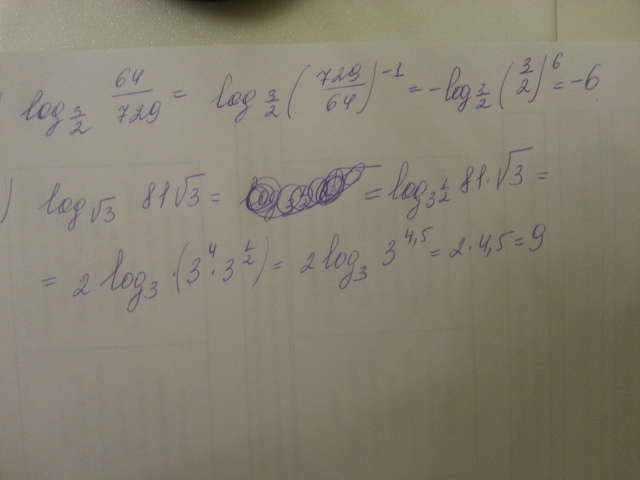 ) log_{3/2} 64/729 = log_{3/2} (729/64)^{-1} = -log_{3/2} (3/2)^6 = -6
) log_{√3} 81√3 = = log_{3^{1/2}} 81·√3 =
= 2 log_3 · (3^4 · 3^{1/2}) = 2 log_3 3^{4,5} = 2·4,5 = 9